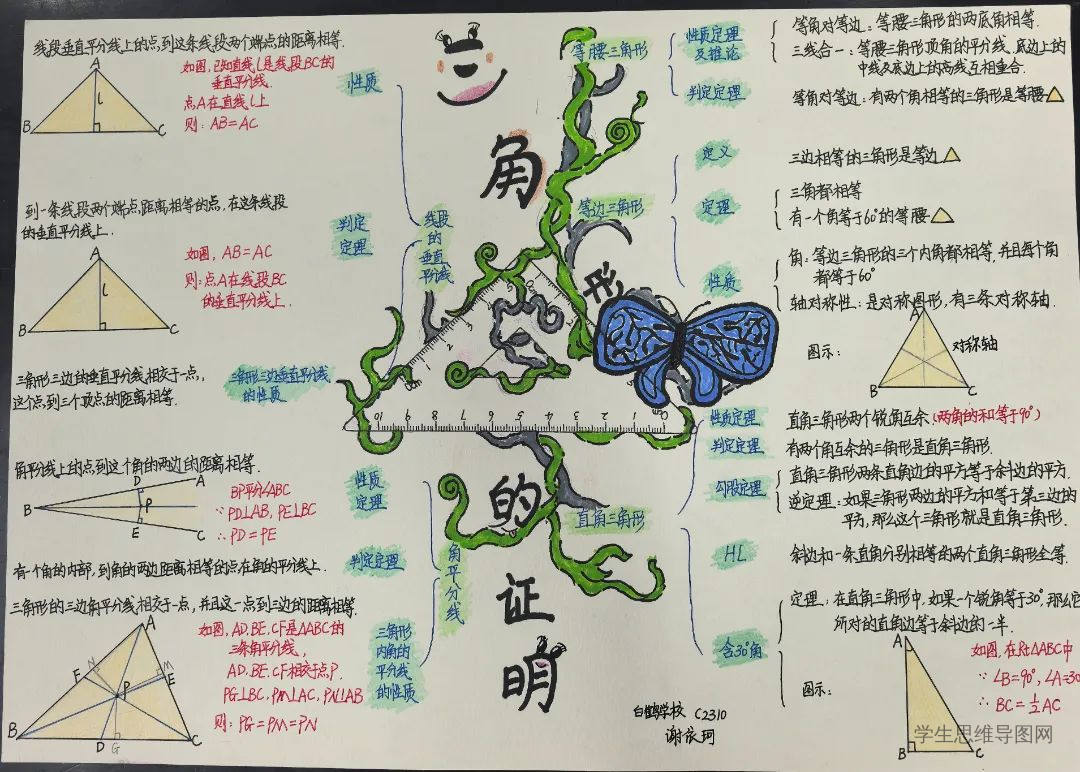 线段垂直平分线上的点,到这条线段两个端点的距离相等.
如图,已知直线l是线段BC的
垂直平分线.
点A在直线l上
则:AB=AC
性质
A
l
B
C
到一条线段两个端点,距离相等的点,在这条线段
的垂直平分线上.
如图,AB=AC
则:点A在线段BC
的垂直平分线上.
判定
定理
A
l
B
C
线段
的
垂直
平分线
三角形三边的垂直平分线,相交于一点,
这个点到三个顶点的距离相等.
三角形三边垂直平分线
的性质
角平分线上的点到这个角的两边的距离相等.
BP平分∠ABC
∵PD⊥AB,PE⊥BC
∴PD=PE
性质
定理
A
D
B
P
E
C
有一个角的内部,到角的两边距离相等的点在角的平分线上.
判定定理
角
平
分
线
三角形的三边角平分线,相交于一点,并且这一点到三边的距离相等.
如图,AD.BE.CF是△ABC的
三条角平分线,
AD.BE.CF相交于点P.
PG⊥BC,PM⊥AC,PN⊥AB
则:PG=PM=PN
三角形
内角的
平分线
的性质
A
N
M
F
E
P
B
D
G
C
三
角
形
的
证
明
10 9 8 7 6 5 4 3 2 1 0
等腰三角形
性质定理
及推论
等角对等边:等腰三角形的两底角相等.
三线合一:等腰三角形顶角的平分线、底边上的
中线及底边上的高线互相重合.
判定定理
等角对等边:有两个角相等的三角形是等腰△
等边三角形
定义
三边相等的三角形是等边△
定理
三角都相等
有一个角等于60°的等腰△
性质
角:等边三角形的三个内角都相等,并且每个角
都等于60°
轴对称性:是对称图形,有三条对称轴.
图示:
A
对称轴
B
C
直角三角形
性质定理
直角三角形两个锐角互余(两角的和等于90°)
判定定理
有两个角互余的三角形是直角三角形.
勾股定理
直角三角形两条直角边的平方等于斜边的平方.
逆定理:如果三角形两边的平方和等于第三边的
平方,那么这个三角形就是直角三角形.
HL
斜边和一条直角分别相等的两个直角三角形全等.
含30°角
定理:在直角三角形中,如果一个锐角等于30°,那么它
所对的直角边等于斜边的一半.
图示:
A
B
C
如图,在Rt△ABC中
∵∠B=90°,∠A=30
∴BC=½AC
白鹤学校 C2310
谢依珂
学生思维导图网